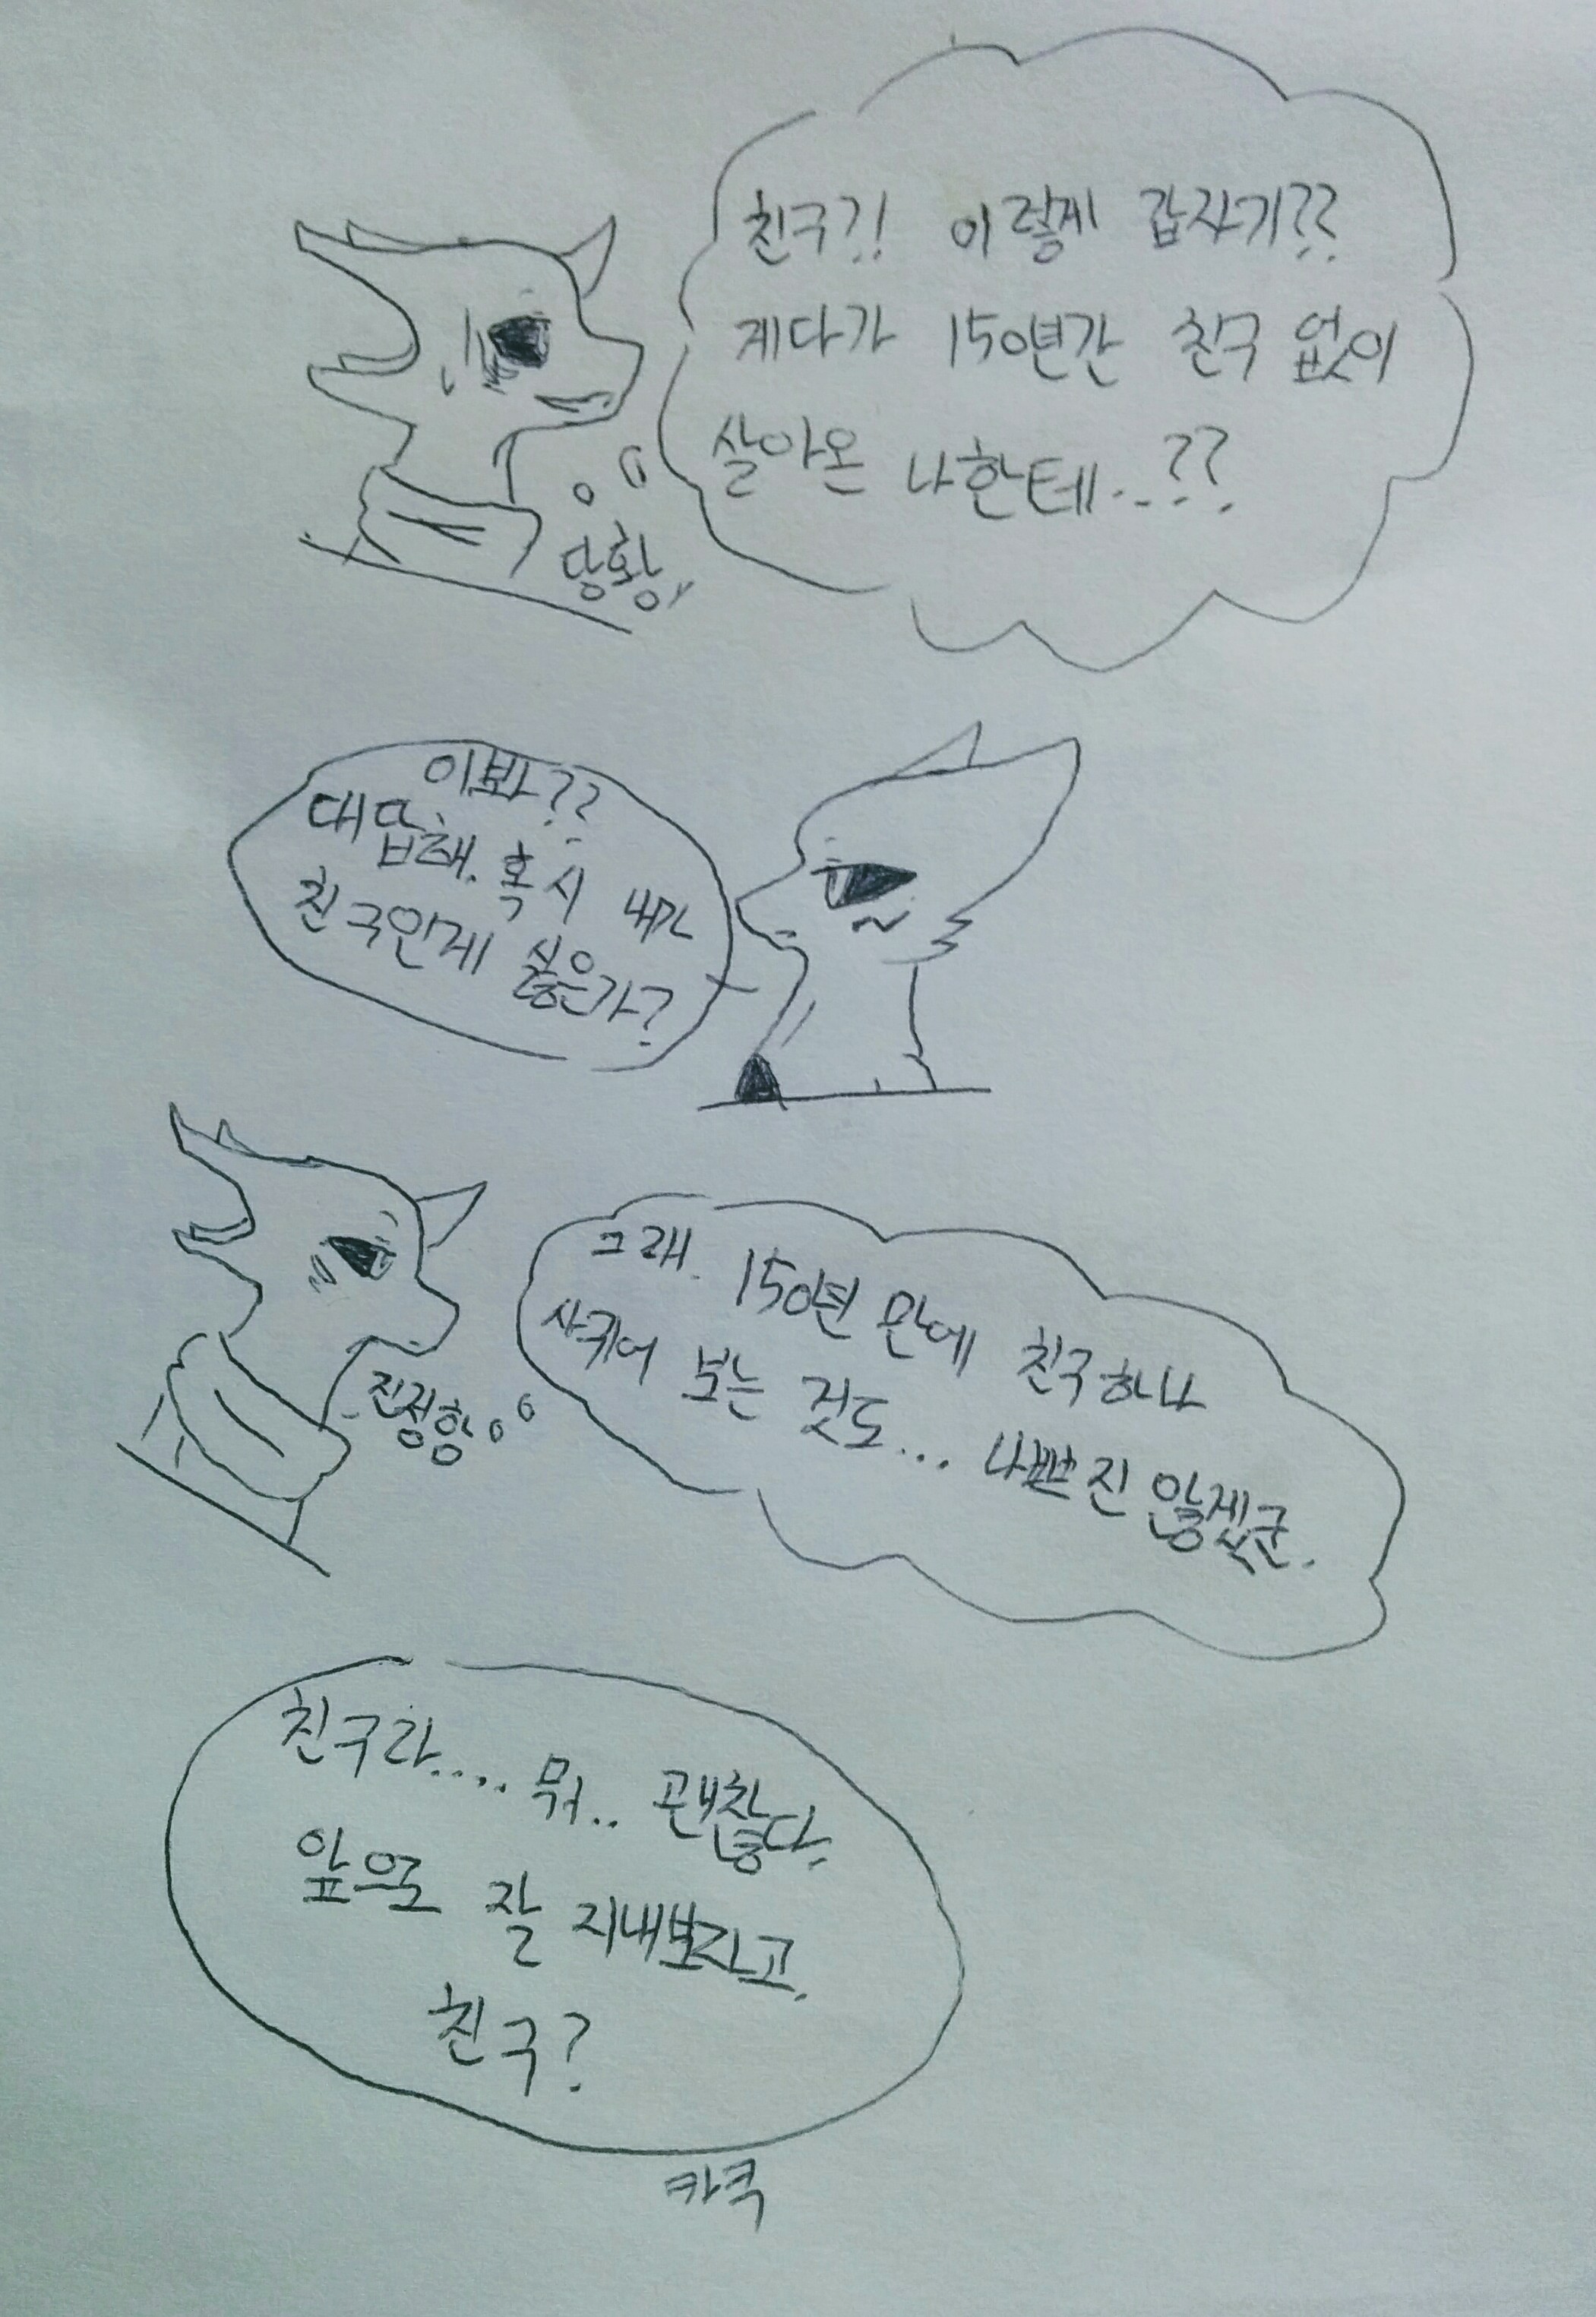 친구?! 이렇게 갑자기??
게다가 150년간 친구 없이
살아온 나한테...??
당황
이봐??
대답해. 혹시 내가
친구인게 싫은가?
그래. 150년 만에 친구하나
사귀어 보는 것도... 나쁘진 않겠군.
진정함
친구라.... 뭐.. 괜찮다.
앞으로 잘 지내보자고.
친구?
카쿡